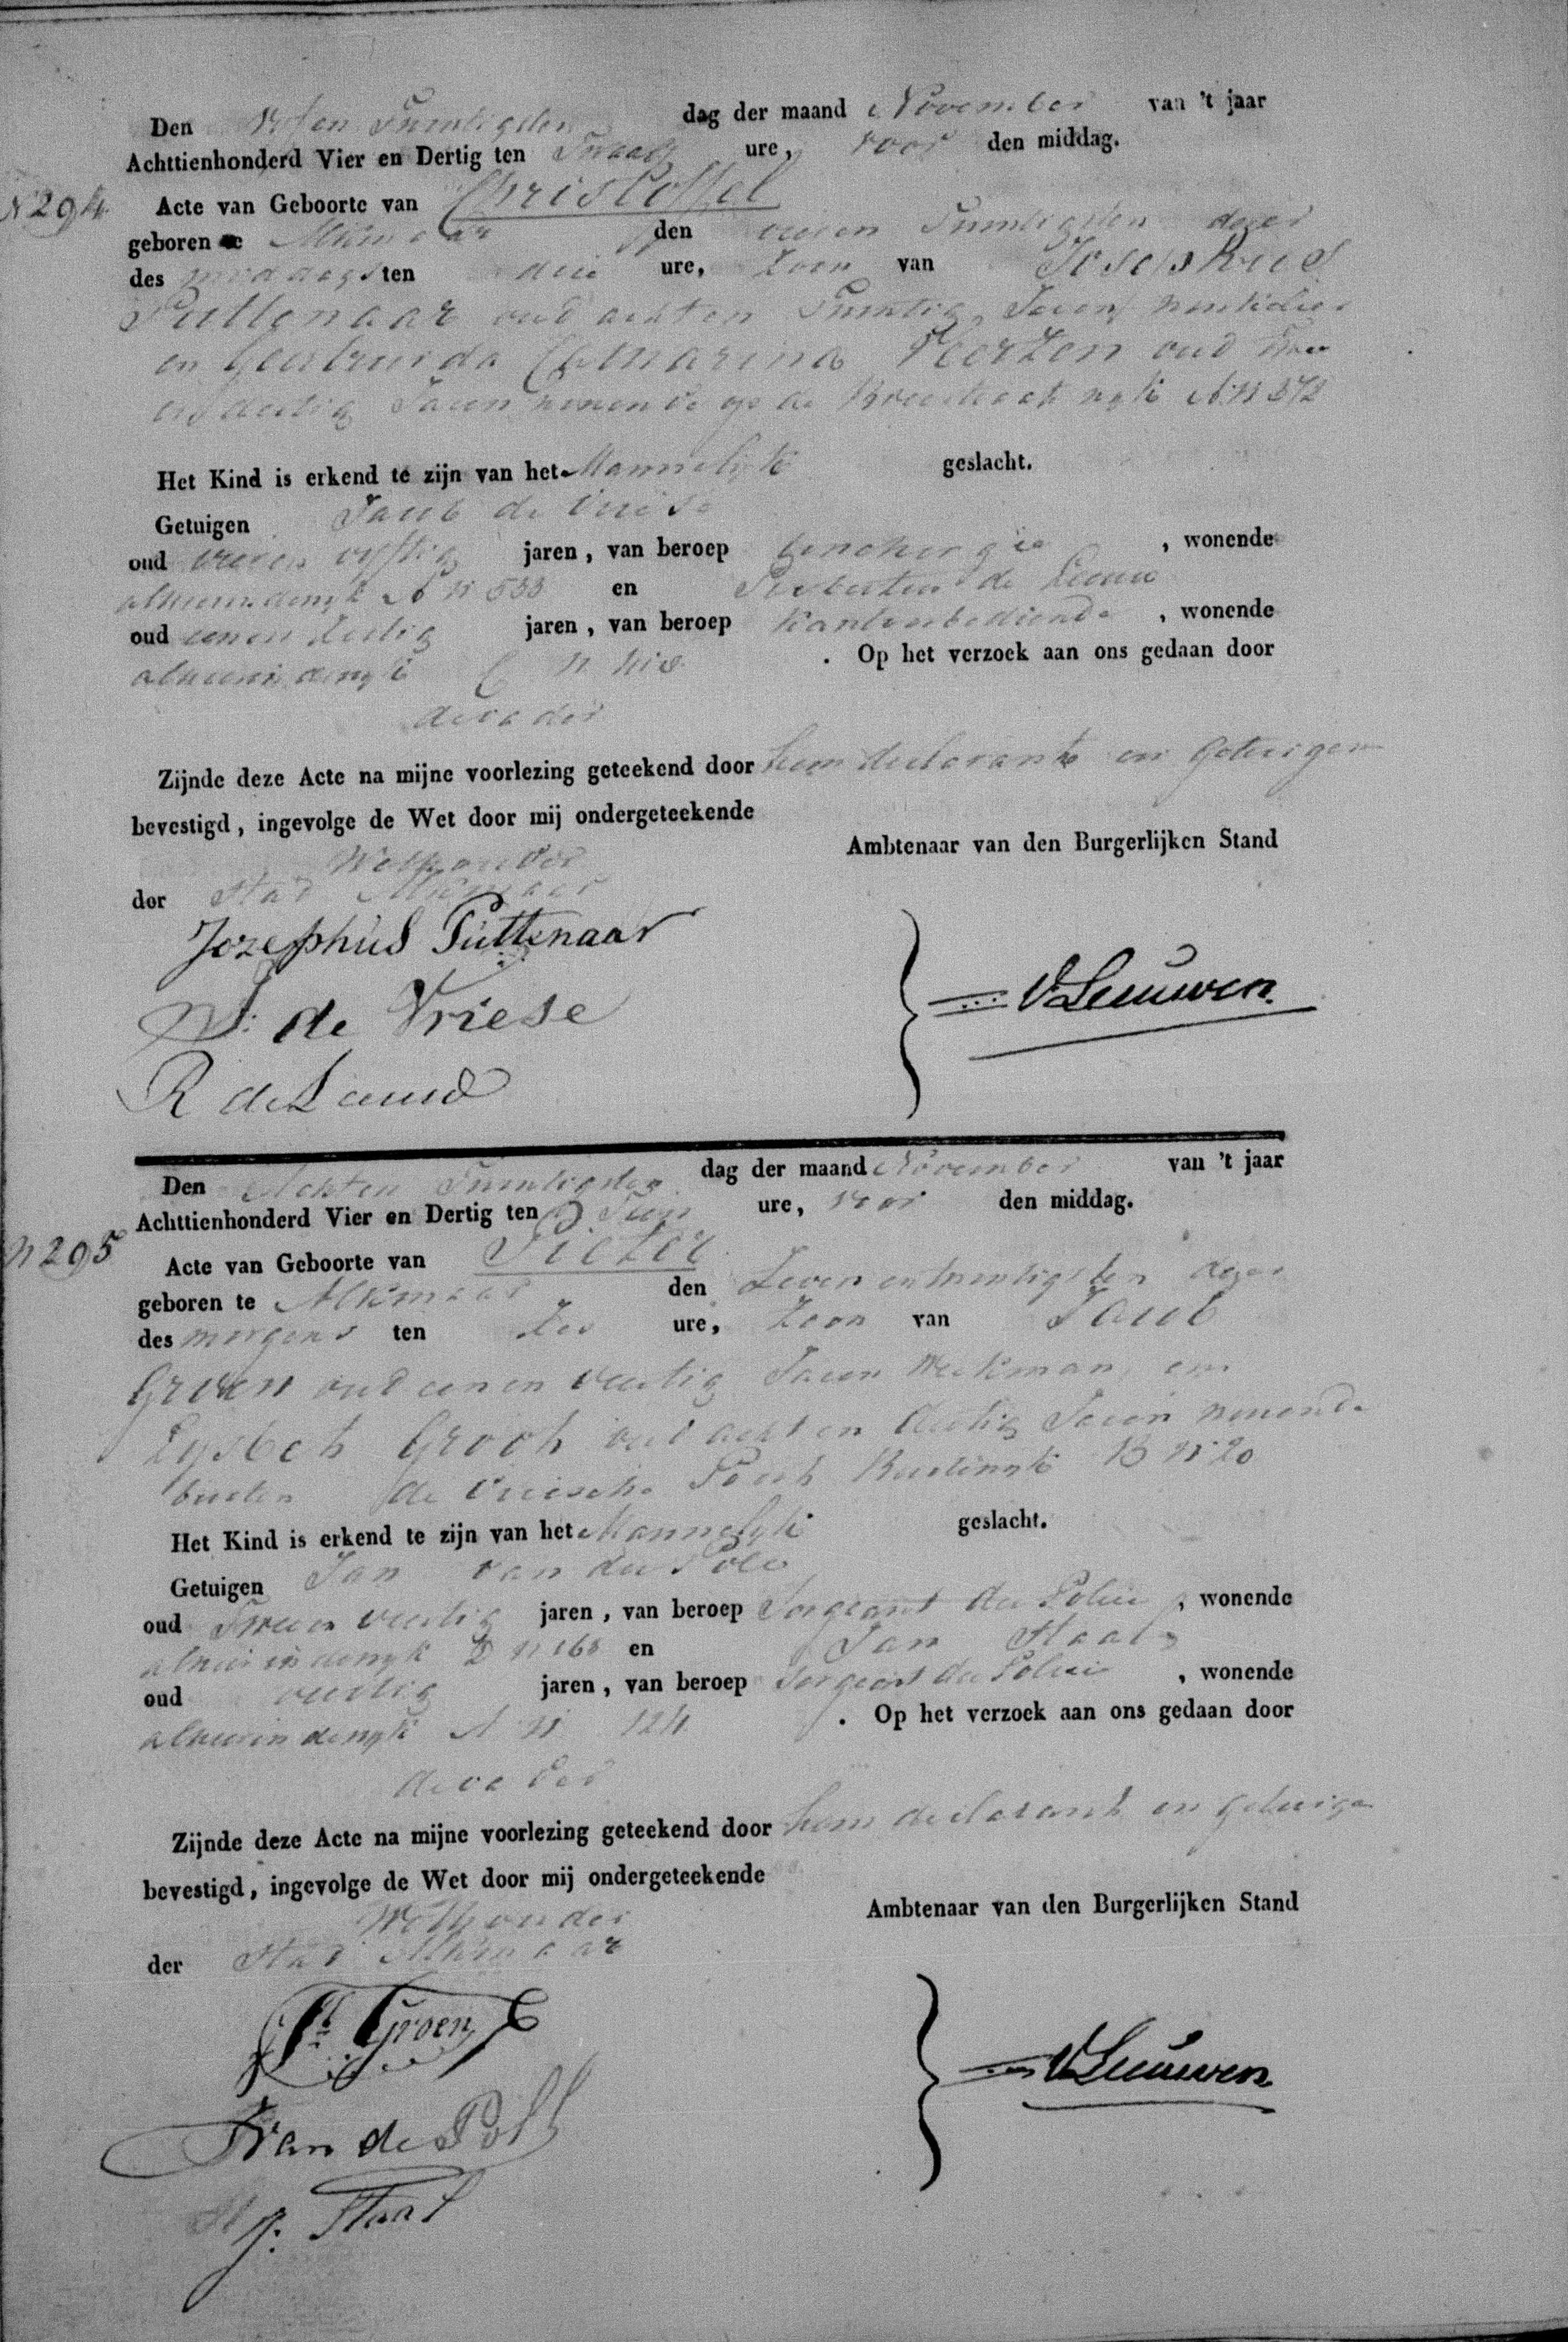 Den Vijfen Twintigsten dag der maand November van 't jaar
Achttienhonderd Vier en Dertig ten Twaalf ure, voor den middag.
N 294 Acte van Geboorte van Christoffel
geboren te Alkmaar den vieren Twintigsten dezer
des middags ten drie ure, Zoon van Josephus
Puttenaar oud achten Twintig Jaren
en Geertruida Catharina Veerzen oud Twee
en dertig Jaren wonende op de Breestraat wyk A. N 372
Het Kind is erkend te zijn van het Mannelyk geslacht.
Getuigen Jacob de Vriese
oud vijftig jaren, van beroep , wonende
alhier in de wyk A N 533 en de Leeuw
oud eenen dertig jaren, van beroep Kantoorbediende , wonende
alhier in de wyk C N . Op het verzoek aan ons gedaan door
de vader
Zijnde deze Acte na mijne voorlezing geteekend door hem declarant en Getuigen
bevestigd, ingevolge de Wet door mij ondergeteekende
Wethouder Ambtenaar van den Burgerlijken Stand
der Stad Alkmaar
Jozephus Puttenaar
V. Leeuwen
J. de Vriese
R de Leeuw
Den Achten Twintigsten dag der maand November van 't jaar
Achttienhonderd Vier en Dertig ten Tien ure, voor den middag.
N 295 Acte van Geboorte van Pieter
geboren te Alkmaar den Zeven en twintigsten dezer
des morgens ten Zes ure, Zoon van Jacob
Groen oud eenen veertig Jaren Werkman, en
Lysbeth Grooth oud acht en dertig Jaren wonende
buiten de Vriesche Poort Buitenwyk B N 20
Het Kind is erkend te zijn van het Mannelyk geslacht.
Getuigen Jan van der Poll
oud Tweeen veertig jaren, van beroep Sergeant der Policie , wonende
alhier in de wyk D N 168 en Jan Staal
oud veertig jaren, van beroep Sergeant der Policie , wonende
alhier in de wyk A N 124 . Op het verzoek aan ons gedaan door
de vader
Zijnde deze Acte na mijne voorlezing geteekend door hem declarant en getuigen
bevestigd, ingevolge de Wet door mij ondergeteekende
Wethouder Ambtenaar van den Burgerlijken Stand
der Stad Alkmaar
Groen
V. Leeuwen
J van de Poll
J. Staal